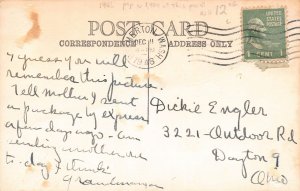 POST CARD
CORRESPONDENCE
ADDRESS ONLY
BREMERTON, WASH.
DEC
1940
UNITED STATES POSTAGE
1 CENT 1
I guess you will
remember this picture.
Tell mother I sent
a package by express
a few days ago - am
sending another one
to-day I think.
Grandmama
Dickie Engler
3221-Outdoor Rd
Dayton 9
Ohio